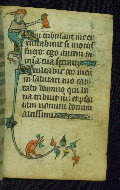 Qui tribulant me ex
ultabunt si motus
fuero ego autem in
mia tua speraui
Exultabit cor meum
in salutari tuo can
tabo domino qui bo
na tribuit m et psal
lam nomini domini
altissimi